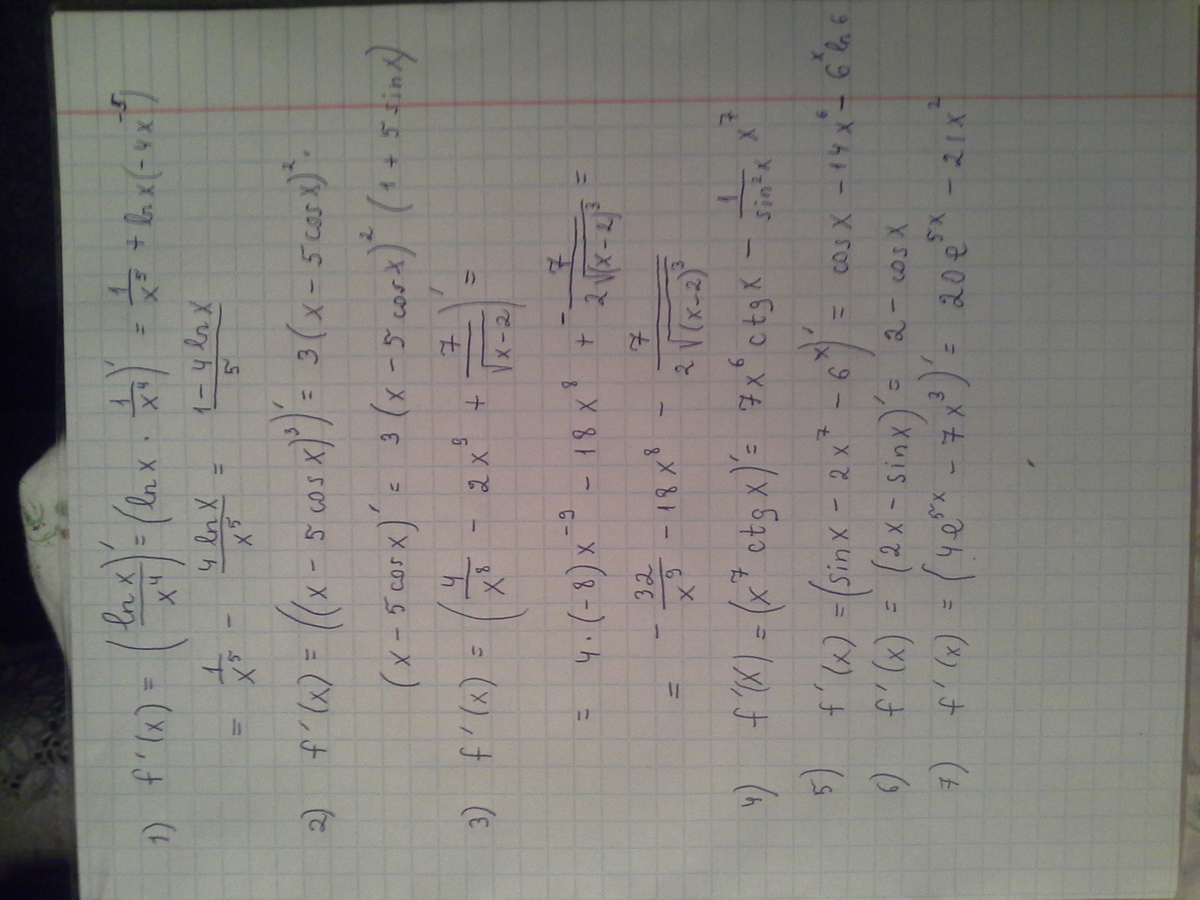 1) f'(x) = (ln x / x⁴)' = (ln x · 1/x⁴)' = 1/x⁵ + ln x (-4x⁻⁵)
= 1/x⁵ - 4 ln x / x⁵ = 1 - 4 ln x / 5
2) f'(x) = ((x - 5 cos x)³)' = 3 (x - 5 cos x)² ·
(x - 5 cos x)' = 3 (x - 5 cos x)² (1 + 5 sin x)
3) f'(x) = (4/x⁸ - 2x⁹ + 7/√(x-2))' =
= 4 · (-8) x⁻⁹ - 18x⁸ + - 7/2√(x-2)³ =
= - 32/x⁹ - 18x⁸ - 7/2√(x-2)³
4) f'(x) = (x⁷ ctg x)' = 7x⁶ ctg x - 1/sin²x x⁷
5) f'(x) = (sin x - 2x⁷ - 6ˣ)' = cos x - 14x⁶ - 6ˣ ln 6
6) f'(x) = (2x - sin x)' = 2 - cos x
7) f'(x) = (4e⁵ˣ - 7x³)' = 20e⁵ˣ - 21x²